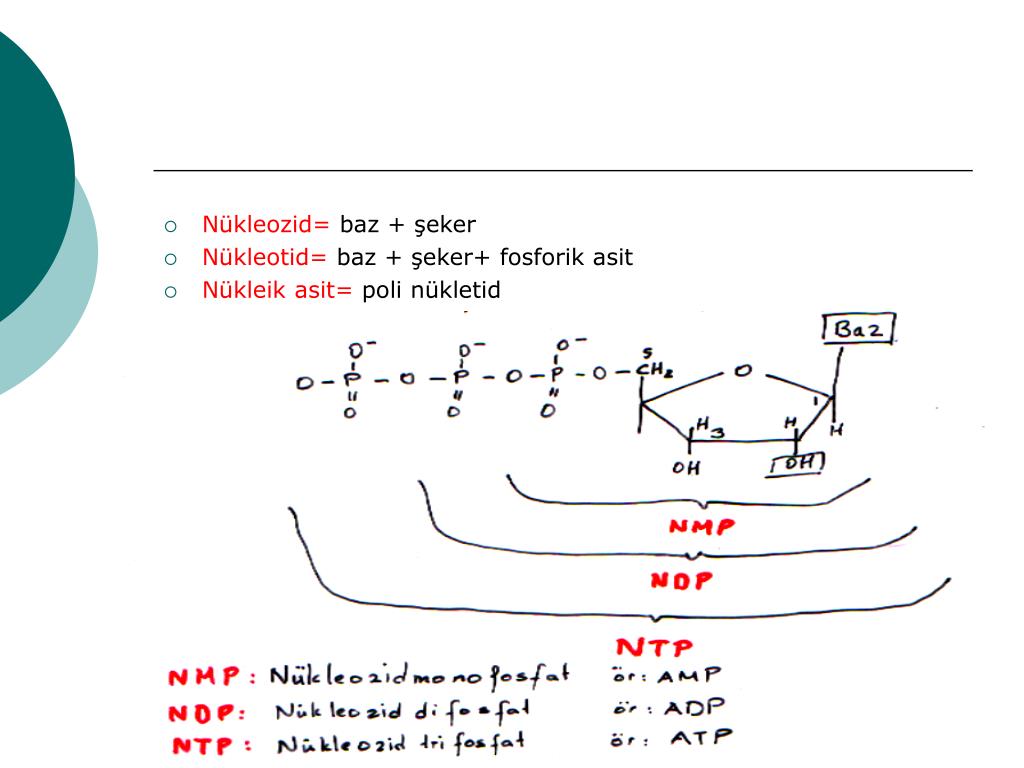 Nükleozid= baz + şeker
Nükleotid= baz + şeker+ fosforik asit
Nükleik asit= poli nükletid
Baz
O⁻ O⁻ O⁻ 5
O – P – O – P – O – P – O – CH₂ O
O O O 1
H 3 H H
OH OH
NMP
NDP
NTP
NMP: Nükleozidmonofosfat ör: AMP
NDP: Nükleozid difosfat ör: ADP
NTP: Nükleozid trifosfat ör: ATP